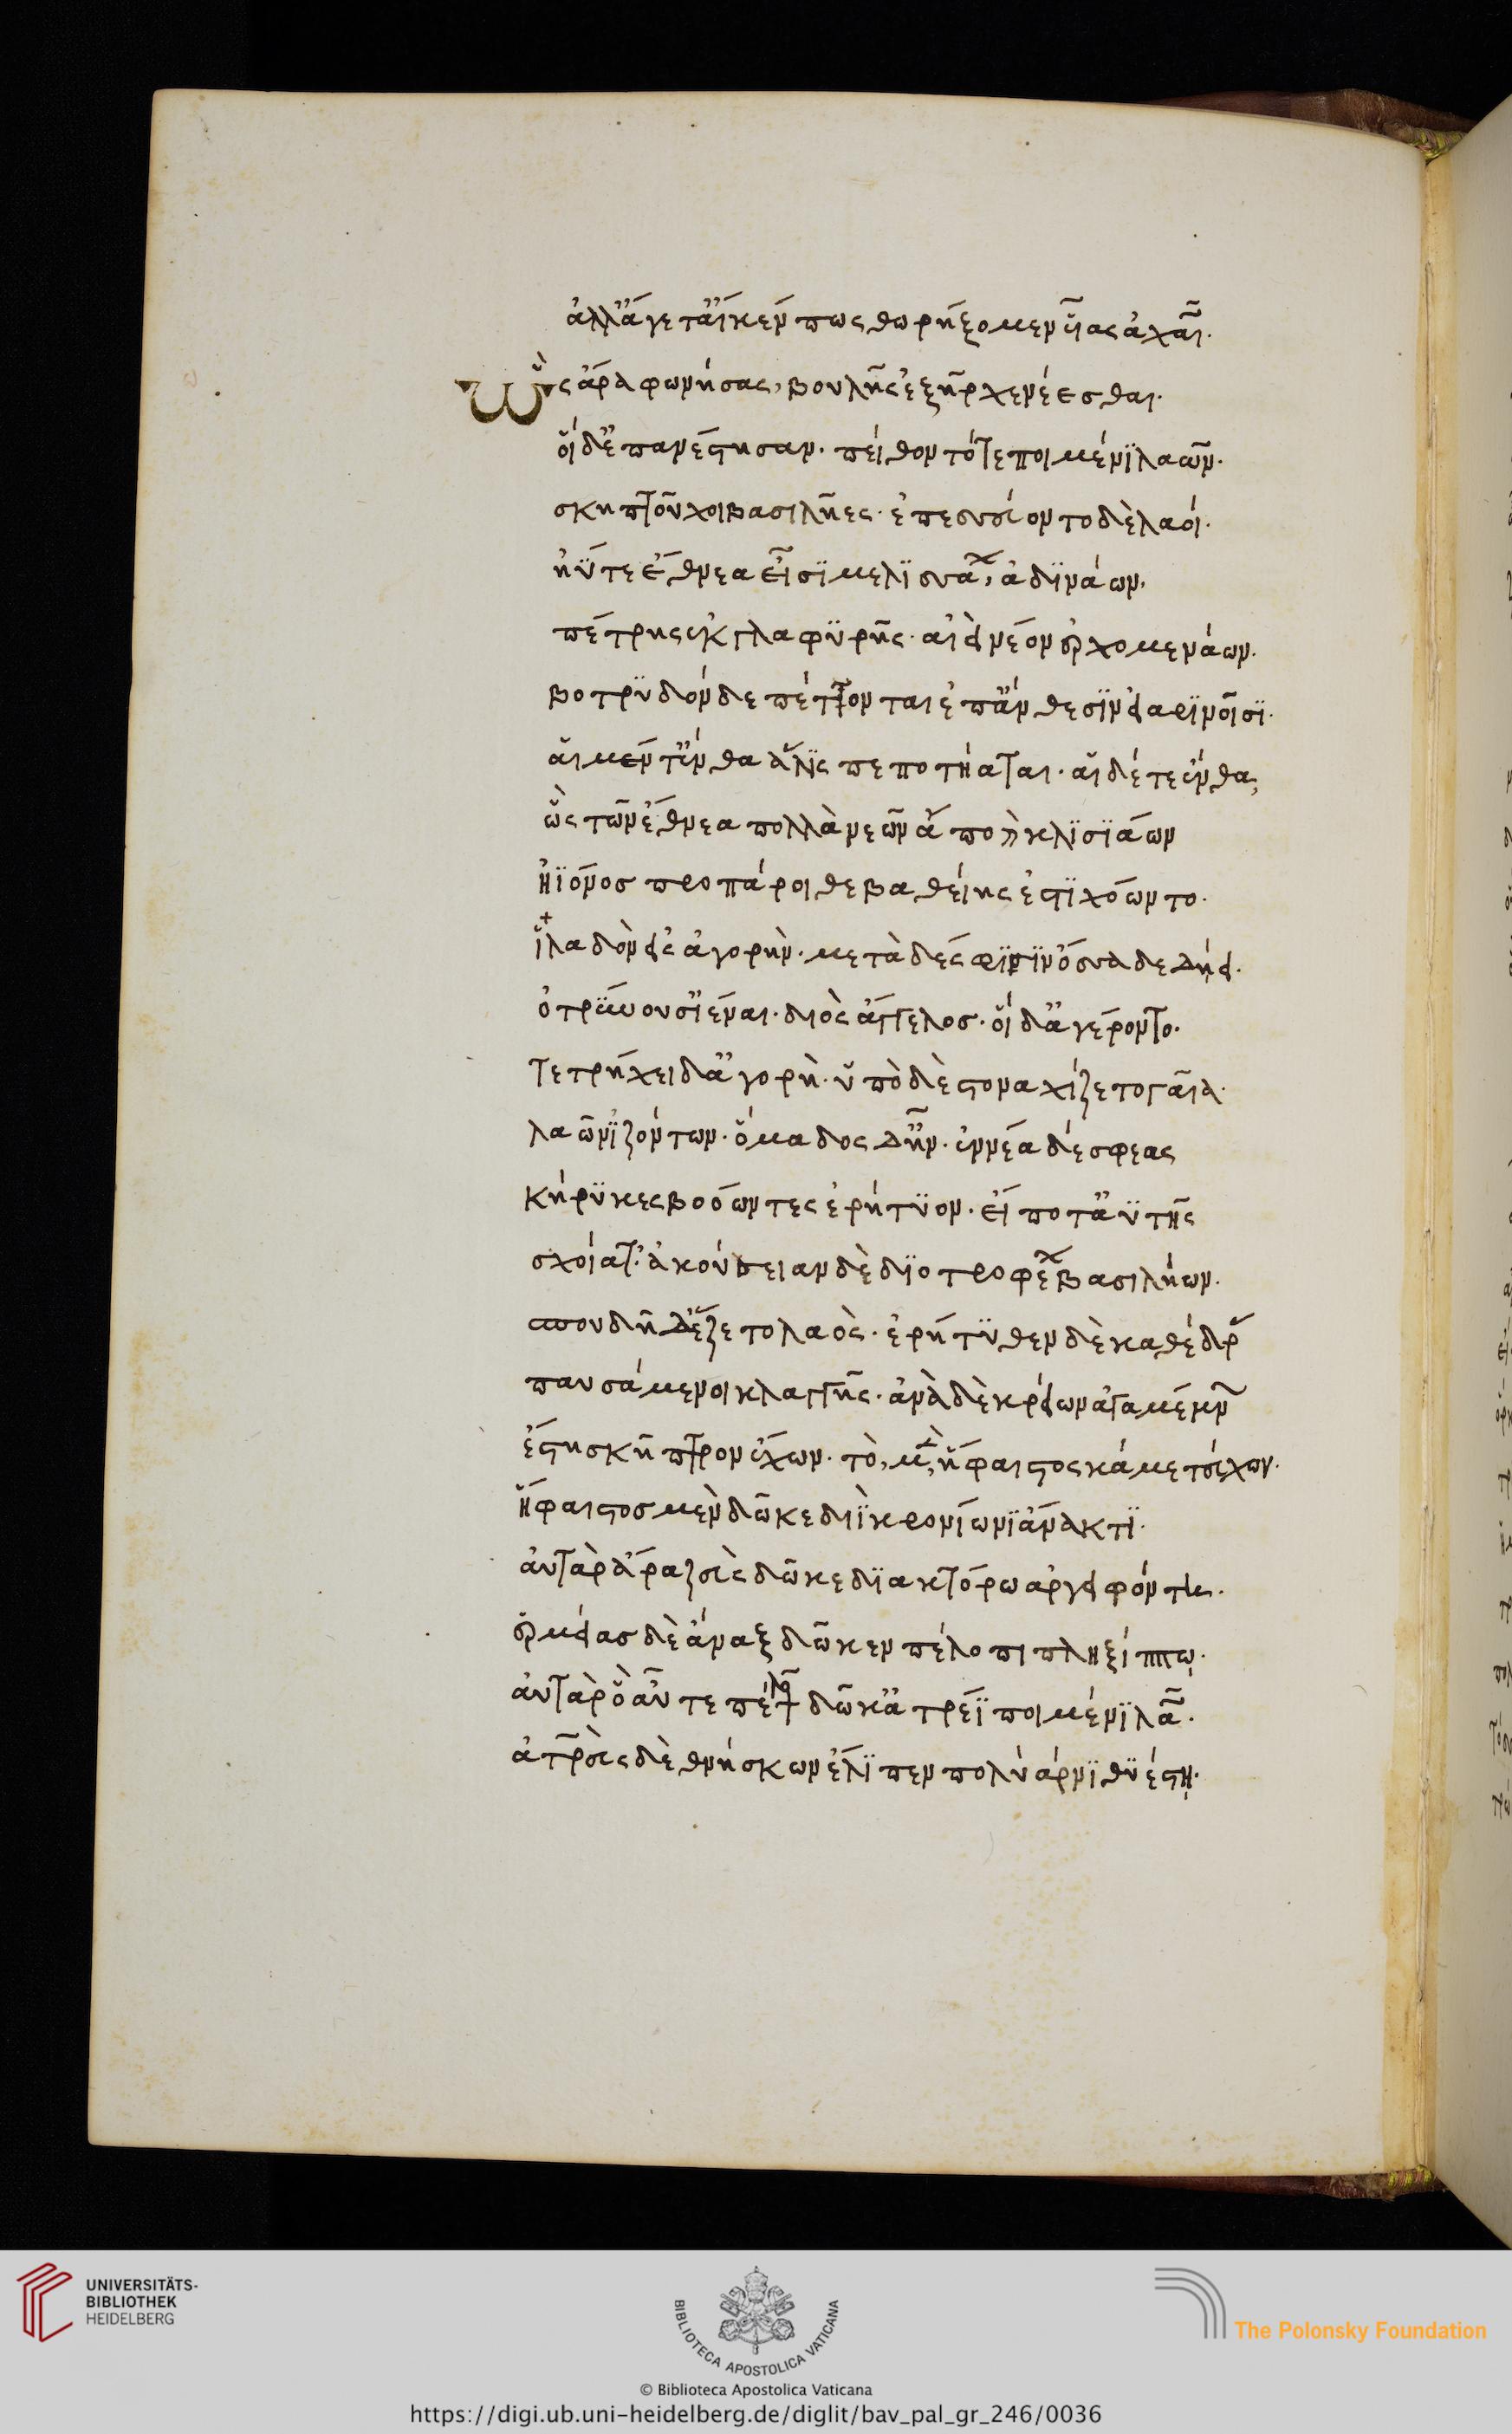 ἀλλ' ἄγετ' αἴ κεν πως θωρήξομεν υἷας ἀχαιῶν.
Ὣς ἄρα φωνήσας, βουλῆς ἐξῆρχε νέεσθαι.
οἱ δ' ἐπανέστησαν. πείθοντό τε ποιμένι λαῶν.
σκηπτοῦχοι βασιλῆες. ἐπεσσεύοντο δὲ λαοί.
ἠΰτε ἔθνεα εἶσι μελισσάων, ἀδινάων,
πέτρης ἐκ γλαφυρῆς. αἰεὶ νέον ἐρχομενάων.
βοτρυδὸν δὲ πέτονται ἐπ' ἄνθεσιν εἰαρινοῖσι.
αἱ μέν τ' ἔνθα ἅλις πεποτήαται. αἱ δέ τε ἔνθα,
ὣς τῶν ἔθνεα πολλὰ νεῶν ἄπο καὶ κλισιάων
ἠϊόνος προπάροιθε βαθείης ἐστιχόωντο.
ἰλαδὸν εἰς ἀγορήν. μετὰ δέ σφισιν ὄσσα δεδήει.
ὀτρύνουσ' ἰέναι. διὸς ἄγγελος. οἱ δ' ἀγέροντο.
τετρήχει δ' ἀγορή. ὑπὸ δὲ στοναχίζετο γαῖα.
λαῶν ἱζόντων. ὅμαδος δ' ἦν. ἐννέα δέ σφεας
κήρυκες βοόωντες ἐρήτυον. εἴ ποτ' ἀϋτῆς
σχοίατ'. ἀκούσειαν δὲ διοτρεφέων βασιλήων.
σπουδῇ δ' ἕζετο λαὸς. ἐρήτυθεν δὲ καθέδρας
παυσάμενοι κλαγγῆς. ἀνὰ δὲ κρείων ἀγαμέμνων
ἔστη σκῆπτρον ἔχων. τὸ, μὲν, ἥφαιστος κάμε τεύχων.
ἥφαιστος μὲν δῶκε διῒ κρονίωνι ἄνακτι.
αὐτὰρ ἄρα ζεὺς δῶκε διακτόρω ἀργειφόντη.
ἑρμείας δὲ ἄναξ δῶκεν πέλοπι πληξίππῳ.
αὐτὰρ ὃ αὖτε πέλοψ δῶκ' ἀτρέϊ ποιμένι λαῶν.
ἀτρεὺς δὲ θνήσκων ἔλιπεν πολύαρνι θυέστῃ.
UNIVERSITÄTS-
BIBLIOTHEK
HEIDELBERG
BIBLIOTECA APOSTOLICA VATICANA
The Polonsky Foundation
© Biblioteca Apostolica Vaticana
https://digi.ub.uni-heidelberg.de/diglit/bav_pal_gr_246/0036